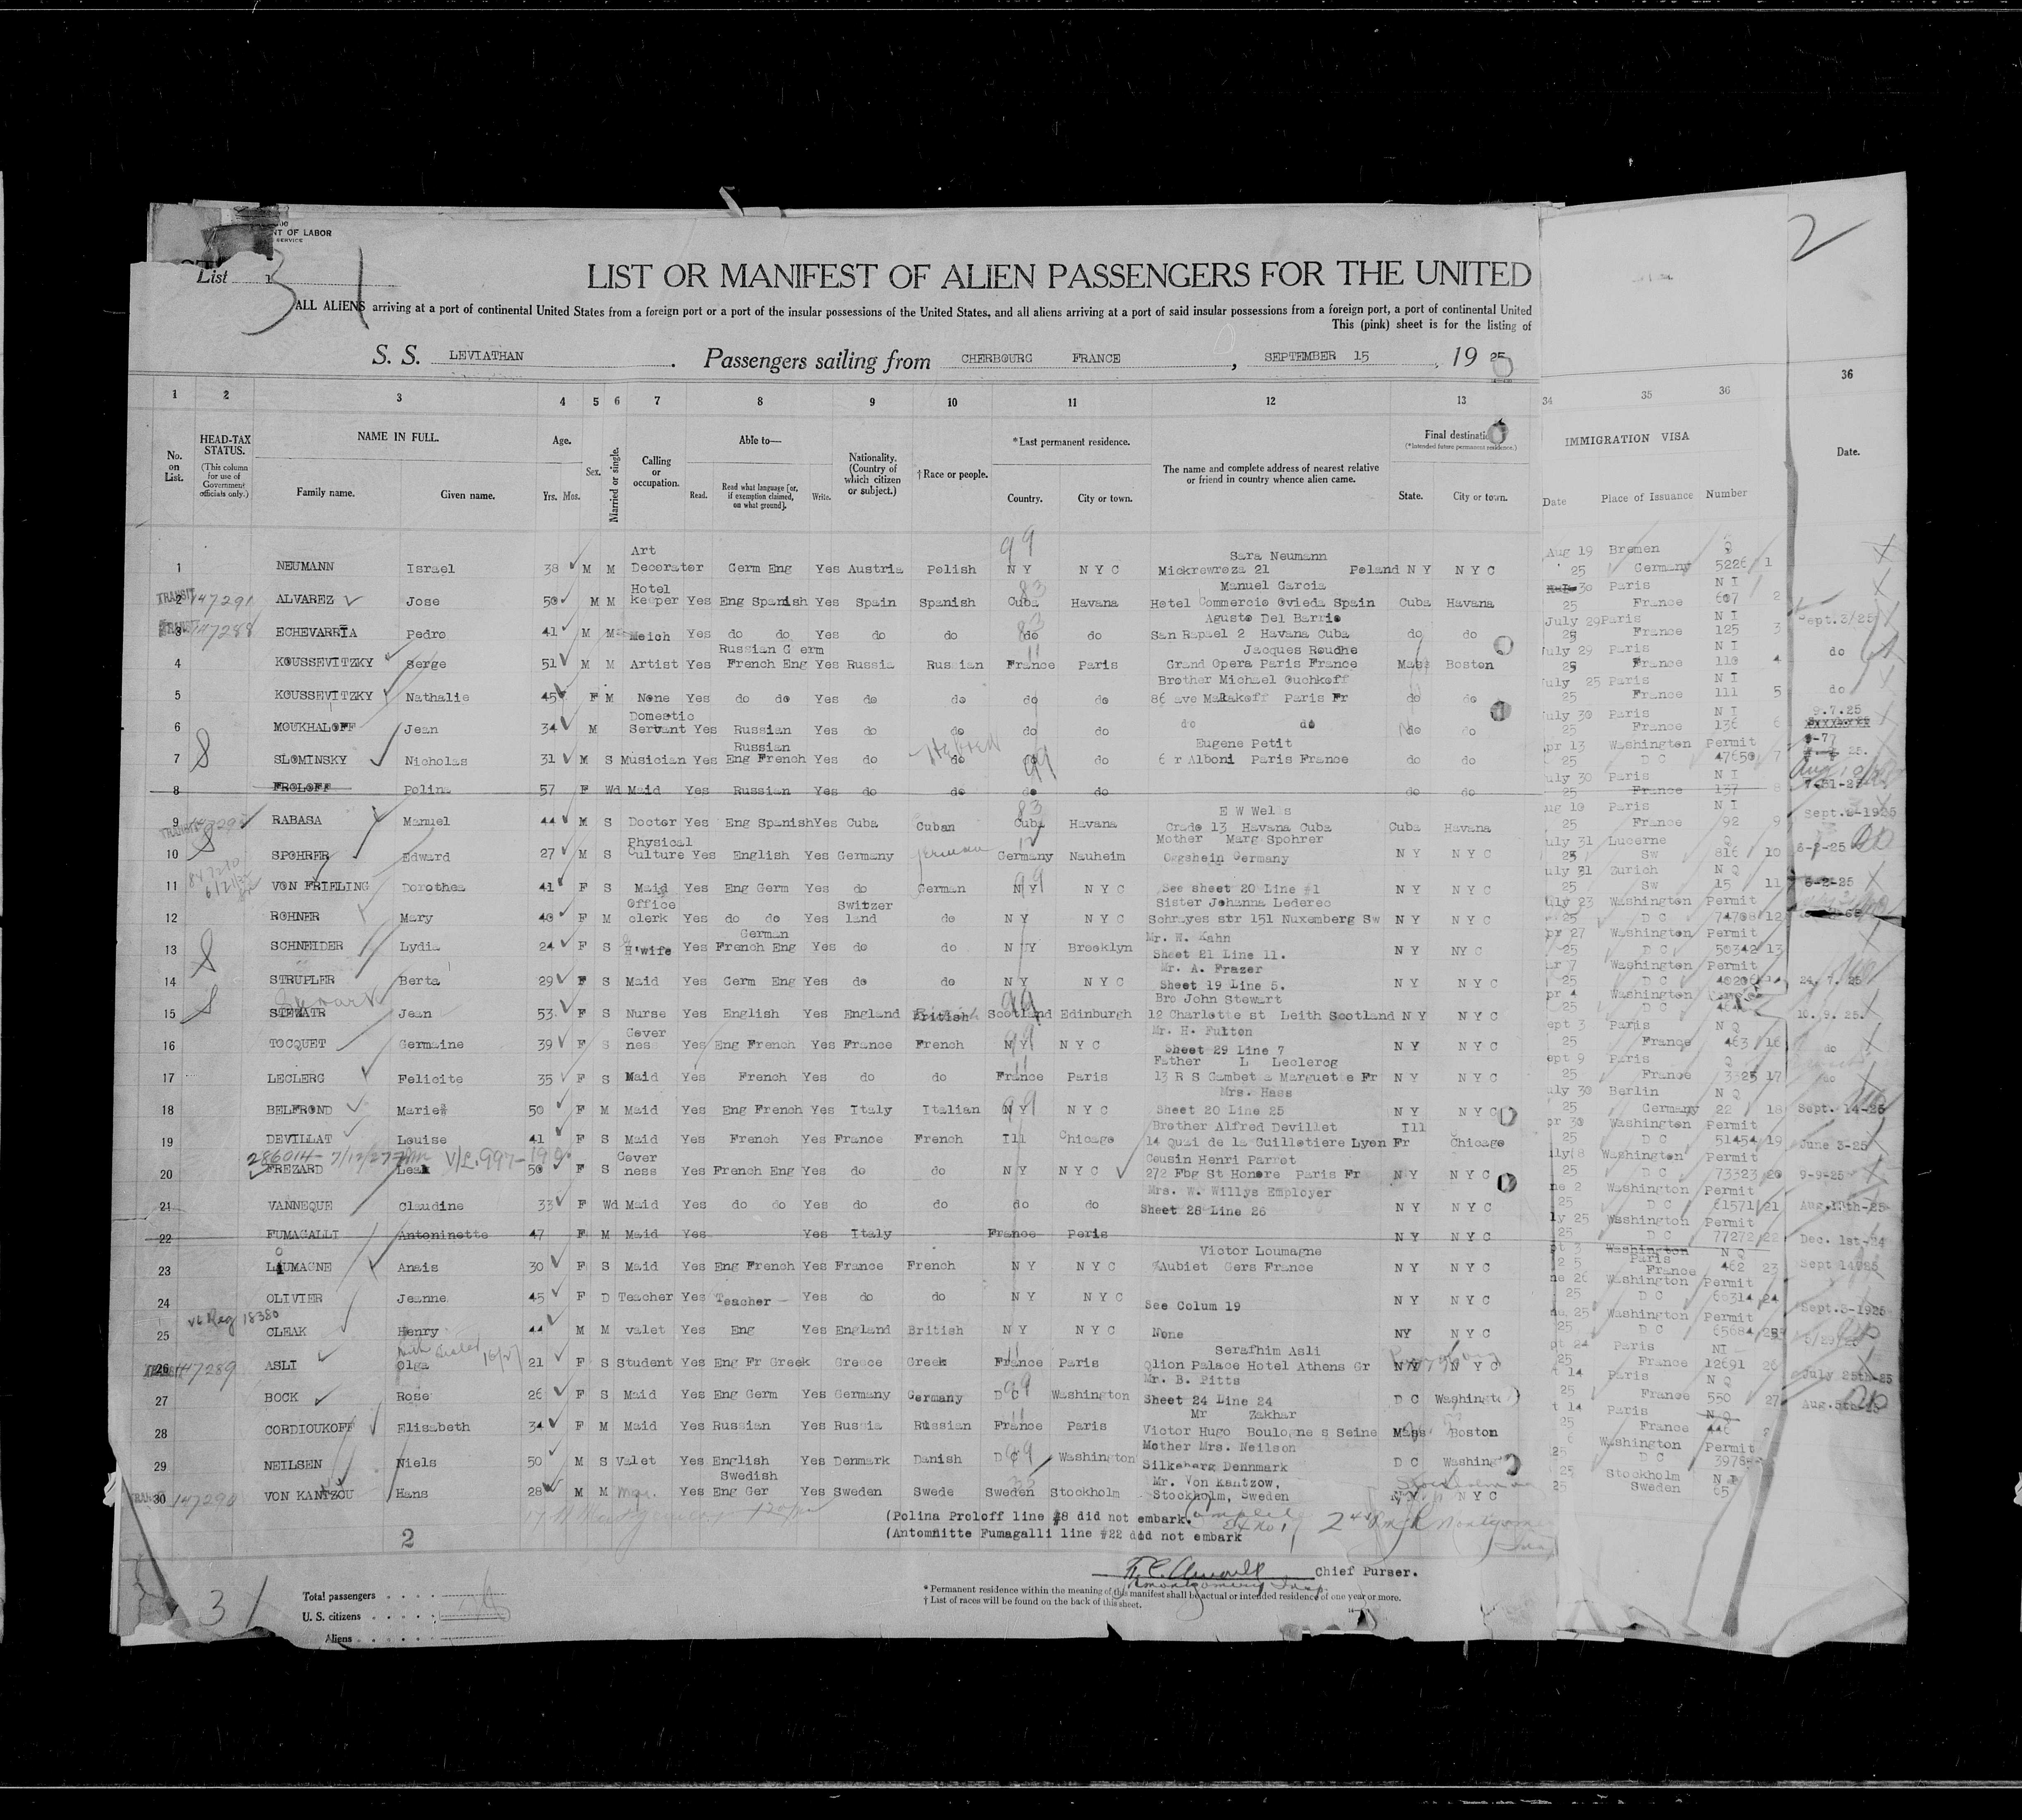 NT OF LABOR
SERVICE
List 1
3 1
2
LIST OR MANIFEST OF ALIEN PASSENGERS FOR THE UNITED
ALL ALIENS arriving at a port of continental United States from a foreign port or a port of the insular possessions of the United States, and all aliens arriving at a port of said insular possessions from a foreign port, a port of continental United
This (pink) sheet is for the listing of
S. S. LEVIATHAN . Passengers sailing from CHERBOURG FRANCE , SEPTEMBER 15 , 19 25
1 2 3 4 5 6 7 8 9 10 11 12 13 34 35 36 36
No. on List. HEAD-TAX STATUS. (This column for use of Government officials only.) NAME IN FULL. Family name. Given name. Age. Yrs. Mos. Sex. Married or single. Calling or occupation. Able to— Read. Read what language [or, if exemption claimed, on what ground]. Write. Nationality. (Country of which citizen or subject.) †Race or people. *Last permanent residence. Country. City or town. The name and complete address of nearest relative or friend in country whence alien came. Final destination (*Intended future permanent residence.) State. City or town. IMMIGRATION VISA Date Place of Issuance Number Date.
1 NEUMANN Israel 38 M M Art Decorater Germ Eng Yes Austria Polish N Y N Y C Sara Neumann Mickrewroza 21 Poland N Y N Y C Aug 19 25 Bremen Germany Q 5226 1
TRANSIT 2 147291 ALVAREZ Jose 50 M M Hotel keeper Yes Eng Spanish Yes Spain Spanish Cuba Havana Manuel Garcia Hotel Commercio Oviedo Spain Cuba Havana 30 25 Paris France N I 607 2
TRANSIT 3 147288 ECHEVARRIA Pedro 41 M M Meich Yes do do Yes do do do do Aguste Del Barrio San Rapael 2 Havana Cuba do do July 29 25 Paris France N I 125 3 Sept.3/25
4 KOUSSEVITZKY Serge 51 M M Artist Yes Russian G erm French Eng Yes Russia Russian France Paris Jacques Roudhe Grand Opera Paris France Mass Boston July 29 25 Paris France N I 110 4 do
5 KOUSSEVITZKY Nathalie 45 F M None Yes do do Yes do do do do Brother Michael Ouchkoff 86 ave Malakoff Paris Fr do do July 25 25 Paris France N I 111 5 do
6 MOUKHALOFF Jean 34 M Domestic Servant Yes Russian Yes do do do do do do do do July 30 25 Paris France N I 136 6 9.7.25
7 SLOMINSKY Nicholas 31 M S Musician Yes Russian Eng French Yes do do Hebrew do do Eugene Petit 6 r Alboni Paris France do do pr 13 25 Washington D C Permit 47650 7
8 FROLOFF Polina 57 F Wd Maid Yes Russian Yes do do do do do do uly 30 25 Paris France N I 137 8
TRANSIT 9 RABASA Manuel 44 M S Doctor Yes Eng Spanish Yes Cuba Cuban Cuba Havana E W Wells Crado 13 Havana Cuba Cuba Havana ug 10 25 Paris France N I 92 9
10 SPOHRER Edward 27 M S Physical Culture Yes English Yes Germany German Germany Nauheim Mother Marg Spohrer Ogshein Germany N Y N Y C uly 31 25 Lucerne SW Q 816 10 6-2-25
11 VON FRIELING Dorothea 41 F S Maid Yes Eng Germ Yes do German N Y N Y C See sheet 20 Line #1 N Y N Y C uly 31 25 Zurich SW N Q 15 11 6-2-25
12 ROHNER Mary 40 F M Office clerk Yes do do Yes Switzer land do N Y N Y C Sister Johanna Lederec Schrayes str 151 Nuxemberg Sw N Y N Y C uly 23 25 Washington D C Permit 74708 12
13 SCHNEIDER Lydia 24 F S H'wife Yes German French Eng Yes do do N Y Brooklyn Mr. W. Kahn Sheet 21 Line 11. N Y NY C pr 27 25 Washington D C Permit 50342 13
14 STRUPLER Berta 29 F S Maid Yes Germ Eng Yes do do N Y N Y C Mr. A. Frazer Sheet 19 Line 5. N Y N Y C 7 25 Washington D C Permit 40206 14 24. 7. 25
15 STEWATR Jean 53 F S Nurse Yes English Yes England British Scotland Edinburgh Bro John Stewart 12 Charlotte st Leith Scotland N Y N Y C pr 4 25 Washington D C 15 10. 9. 25.
16 TOCQUET Germaine 39 F S Gover ness Yes Eng French Yes France French N Y N Y C Mr. H. Fulton Sheet 29 Line 7 N Y N Y C ept 3 25 Paris France N Q 463 16 do
17 LECLERC Felicite 35 F S Maid Yes French Yes do do France Paris Father L Leclercg 13 R S Gambetta Marguette Fr N Y N Y C ept 9 25 Paris France Q 3325 17 do
18 BELFROND Marie 50 F M Maid Yes Eng French Yes Italy Italian N Y N Y C Mrs. Hass Sheet 20 Line 25 N Y N Y C uly 30 25 Berlin Germany N Q 22 18 Sept. 14-25
19 DEVILLAT Louise 41 F S Maid Yes French Yes France French Ill Chicago Brother Alfred Devillet 14 Quai de la Guilletiere Lyon Fr Ill Chicago pr 30 25 Washington D C Permit 51454 19 June 3-25
286014 - 7/12/27 V/L.997-190
20 FREZARD Lea 50 F S Gover ness Yes French Eng Yes do do N Y N Y C Cousin Henri Parrot 272 Fbg St Honore Paris Fr N Y N Y C uly 8 25 Washington D C Permit 73323 20 9-9-25
21 VANNEQUE Claudine 33 F Wd Maid Yes do do Yes do do do do Mrs. W. Willys Employer Sheet 28 Line 26 N Y N Y C ne 2 25 Washington D C Permit 61571 21 Aug.13th-25
22 FUMAGALLI Antoninette 47 F M Maid Yes Yes Italy France Paris N Y N Y C ly 25 25 Washington D C Permit 77272 22 Dec. 1st-24
23 LOUMAGNE Anais 30 F S Maid Yes Eng French Yes France French N Y N Y C Victor Loumagne Aubiet Gers France N Y N Y C pt 3 25 Washington Paris France N Q 462 23
24 OLIVIER Jeanne 45 F D Teacher Yes Teacher Yes do do N Y N Y C See Colum 19 N Y N Y C ne 26 25 Washington D C Permit 66314 24 Sept.3-1925
VL Reg 18380
25 CLEAK Henry 44 M M valet Yes Eng Yes England British N Y N Y C None NY N Y C 25 25 Washington D C Permit 65684 25
TRANSIT 26 147289 ASLI Olga 21 F S Student Yes Eng Fr Greek Greece Greek France Paris Serafhim Asli Olion Palace Hotel Athens Gr N Y N Y C pt 24 25 Paris France NI 12691 26 July 25th-25
27 BOCK Rose 26 F S Maid Yes Eng Germ Yes Germany Germany D C Washington Mr. B. Pitts Sheet 24 Line 24 D C Washingt t 14 25 Paris France N Q 550 27 Aug.5th-25
28 CORDIOUKOFF Elisabeth 34 F M Maid Yes Russian Yes Russia Russian France Paris Mr Zakhar Victor Hugo Boulogne s Seine Mass Boston t 14 25 Paris France N Q 446
29 NEILSEN Niels 50 M S Valet Yes English Yes Denmark Danish D C Washington Mother Mrs. Neilson Silkeberg Dennmark D C Washingt 6 25 Washington D C Permit 3978
TRANSIT 30 147290 VON KANTZOU Hans 28 M M Yes Swedish Eng Ger Yes Sweden Swede Sweden Stockholm Mr. Von Kantzow, Stockholm, Sweden N Y N Y C 25 Stockholm Sweden N I 65
(Polina Proloff line #8 did not embark.
(Antomnitte Fumagalli line #22 did not embark
2
Chief Purser.
Total passengers
U. S. citizens
Aliens
3 1
* Permanent residence within the meaning of this manifest shall be actual or intended residence of one year or more.
† List of races will be found on the back of this sheet.